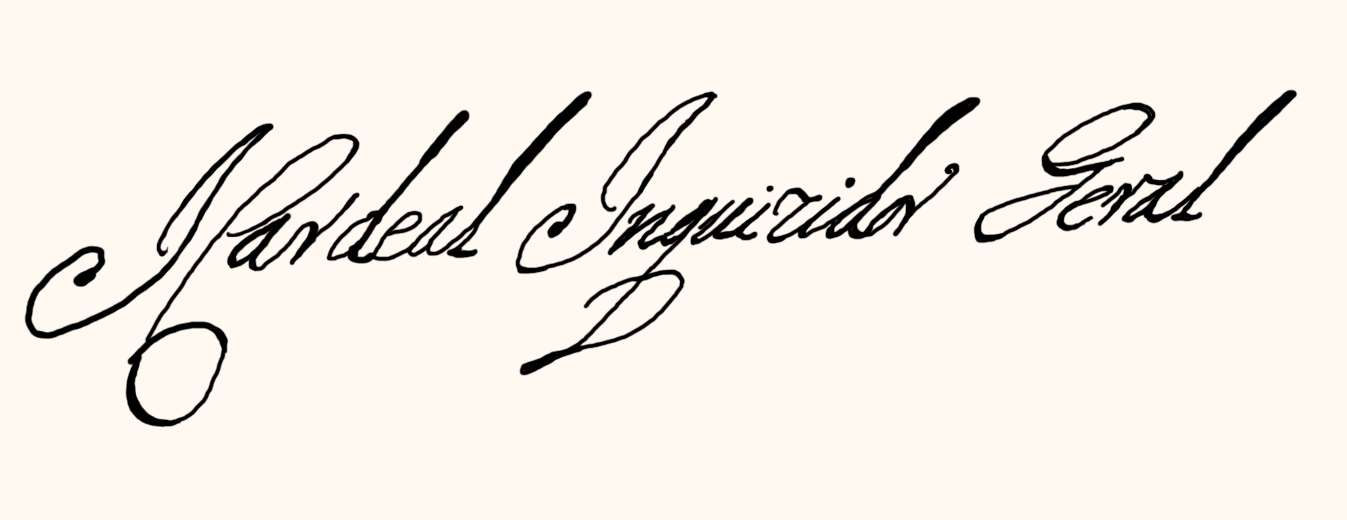 N Cardeal Inquizidor Geral